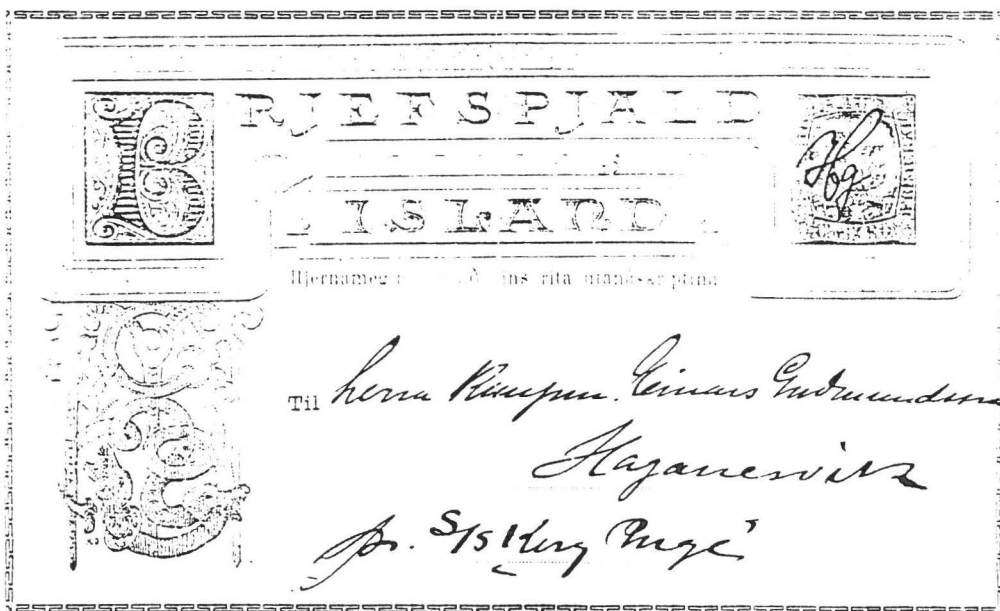 BRJEFSPJALD
ISLAND
Hjernameg ins rita utaná
Til herra Kaupm. Einars Gudmundssonar
Haganesvik
pr. S/S Kong Inge
Hfg